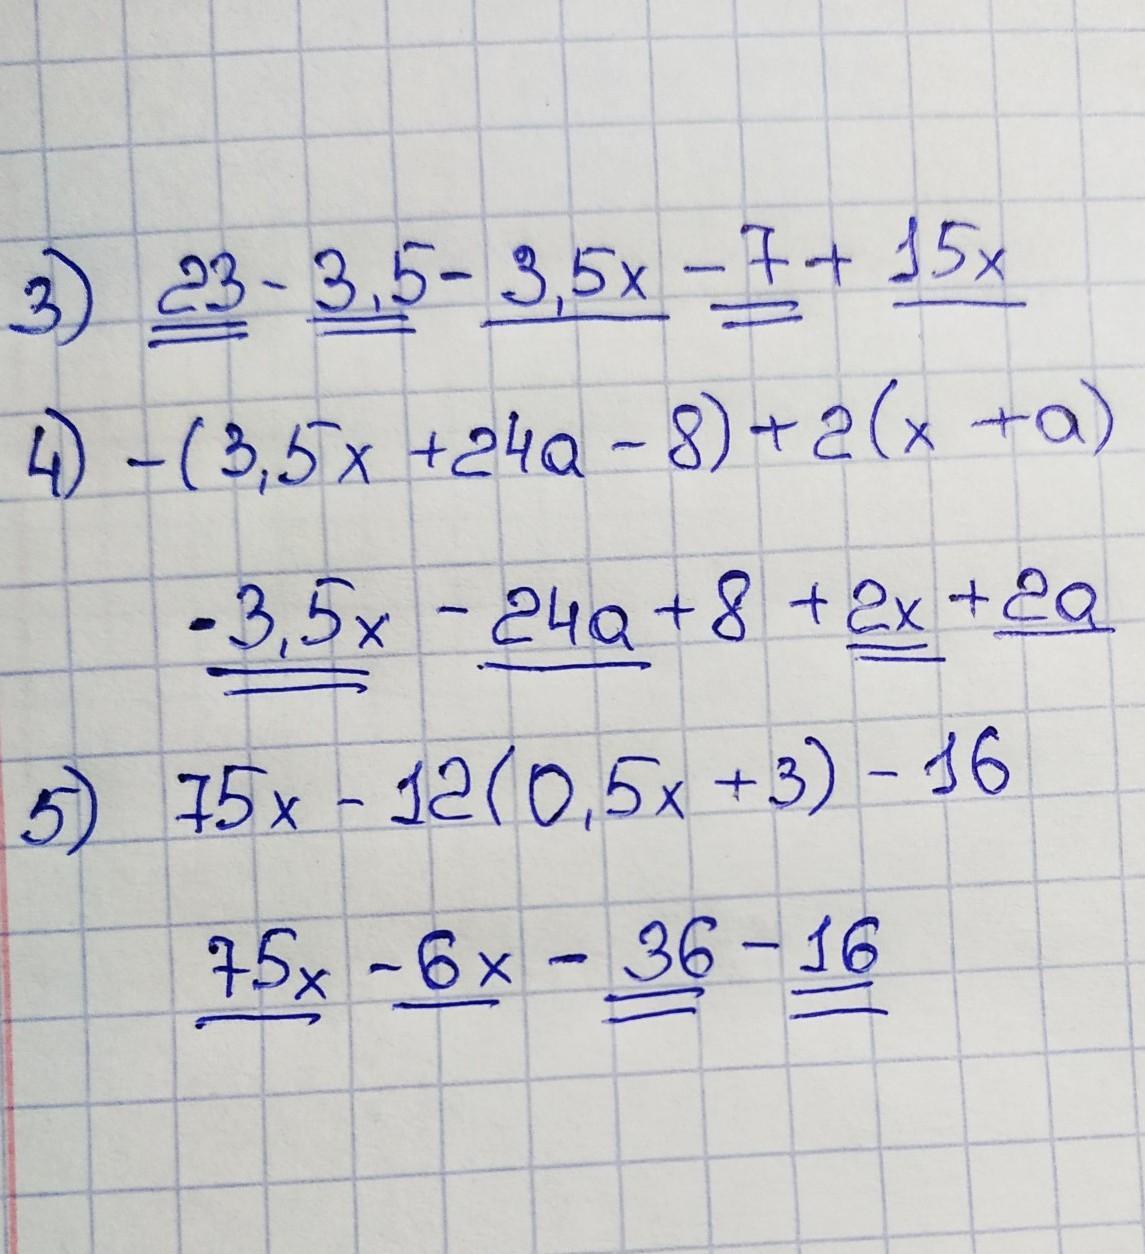 3) 23 - 3,5 - 3,5x - 7 + 15x
4) -(3,5x + 24a - 8) + 2(x + a)
-3,5x - 24a + 8 + 2x + 2a
5) 75x - 12(0,5x + 3) - 16
75x - 6x - 36 - 16